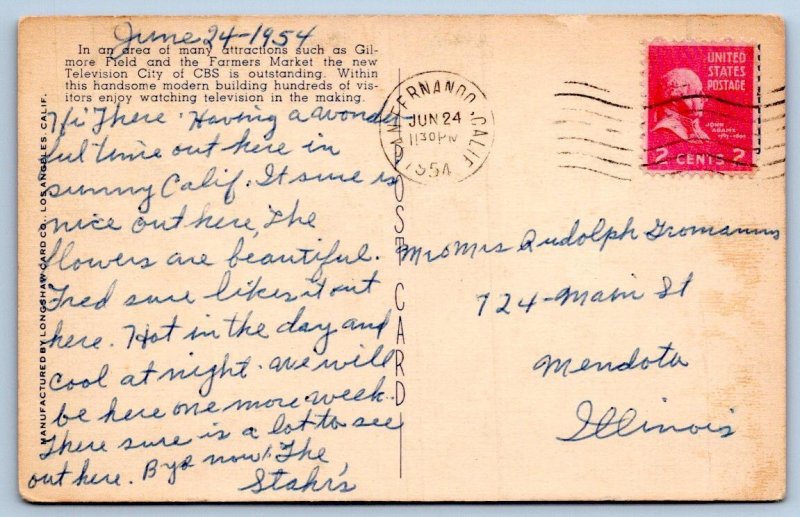 June 24-1954
In an area of many attractions such as Gil-
more Field and the Farmers Market the new
Television City of CBS is outstanding. Within
this handsome modern building hundreds of vis-
itors enjoy watching television in the making.
Hi There. Having a wonder
ful time out here in
sunny Calif. It sure is
nice out here, The
flowers are beautiful.
Fred sure likes it out
here. Hot in the day and
cool at night. We will
be here one more week.
There sure is a lot to see
out here. Bye now! The
Stahr's
MANUFACTURED BY LONGSHAW CARD CO. LOS ANGELES, CALIF.
POST CARD
SAN FERNANDO, CALIF.
JUN 24
1130 PM
1954
UNITED
STATES
POSTAGE
JOHN
ADAMS
2 CENTS 2
Mr & Mrs Rudolph Gromanns
724-Main St
Mendota
Illinois